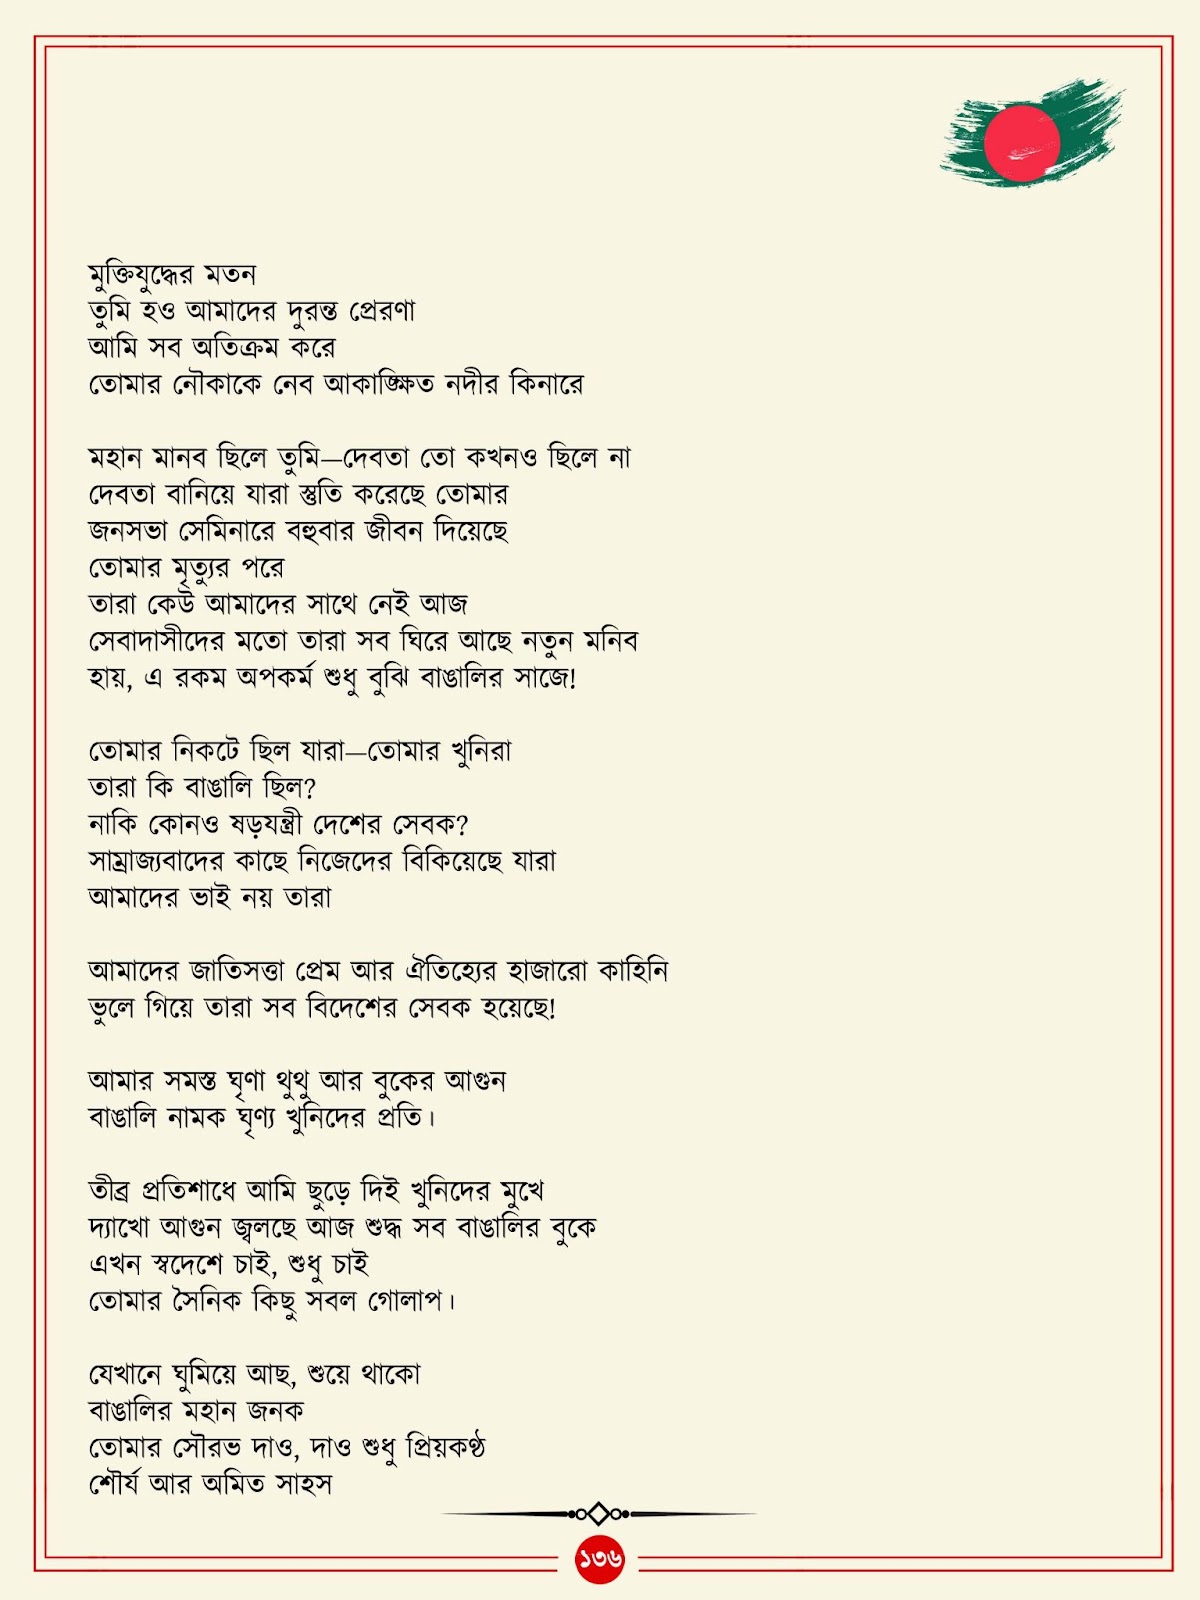 মুক্তিযুদ্ধের মতন
তুমি হও আমাদের দুরন্ত প্রেরণা
আমি সব অতিক্রম করে
তোমার নৌকাকে নেব আকাঙ্ক্ষিত নদীর কিনারে
মহান মানব ছিলে তুমি—দেবতা তো কখনও ছিলে না
দেবতা বানিয়ে যারা স্তুতি করেছে তোমার
জনসভা সেমিনারে বহুবার জীবন দিয়েছে
তোমার মৃত্যুর পরে
তারা কেউ আমাদের সাথে নেই আজ
সেবাদাসীদের মতো তারা সব ঘিরে আছে নতুন মনিব
হায়, এ রকম অপকর্ম শুধু বুঝি বাঙালির সাজে!
তোমার নিকটে ছিল যারা—তোমার খুনিরা
তারা কি বাঙালি ছিল?
নাকি কোনও ষড়যন্ত্রী দেশের সেবক?
সাম্রাজ্যবাদের কাছে নিজেদের বিকিয়েছে যারা
আমাদের ভাই নয় তারা
আমাদের জাতিসত্তা প্রেম আর ঐতিহ্যের হাজারো কাহিনি
ভুলে গিয়ে তারা সব বিদেশের সেবক হয়েছে!
আমার সমস্ত ঘৃণা থুথু আর বুকের আগুন
বাঙালি নামক ঘৃণ্য খুনিদের প্রতি।
তীব্র প্রতিশাধে আমি ছুড়ে দিই খুনিদের মুখে
দ্যাখো আগুন জ্বলছে আজ শুদ্ধ সব বাঙালির বুকে
এখন স্বদেশে চাই, শুধু চাই
তোমার সৈনিক কিছু সবল গোলাপ।
যেখানে ঘুমিয়ে আছ, শুয়ে থাকো
বাঙালির মহান জনক
তোমার সৌরভ দাও, দাও শুধু প্রিয়কণ্ঠ
শৌর্য আর অমিত সাহস
১৩৬